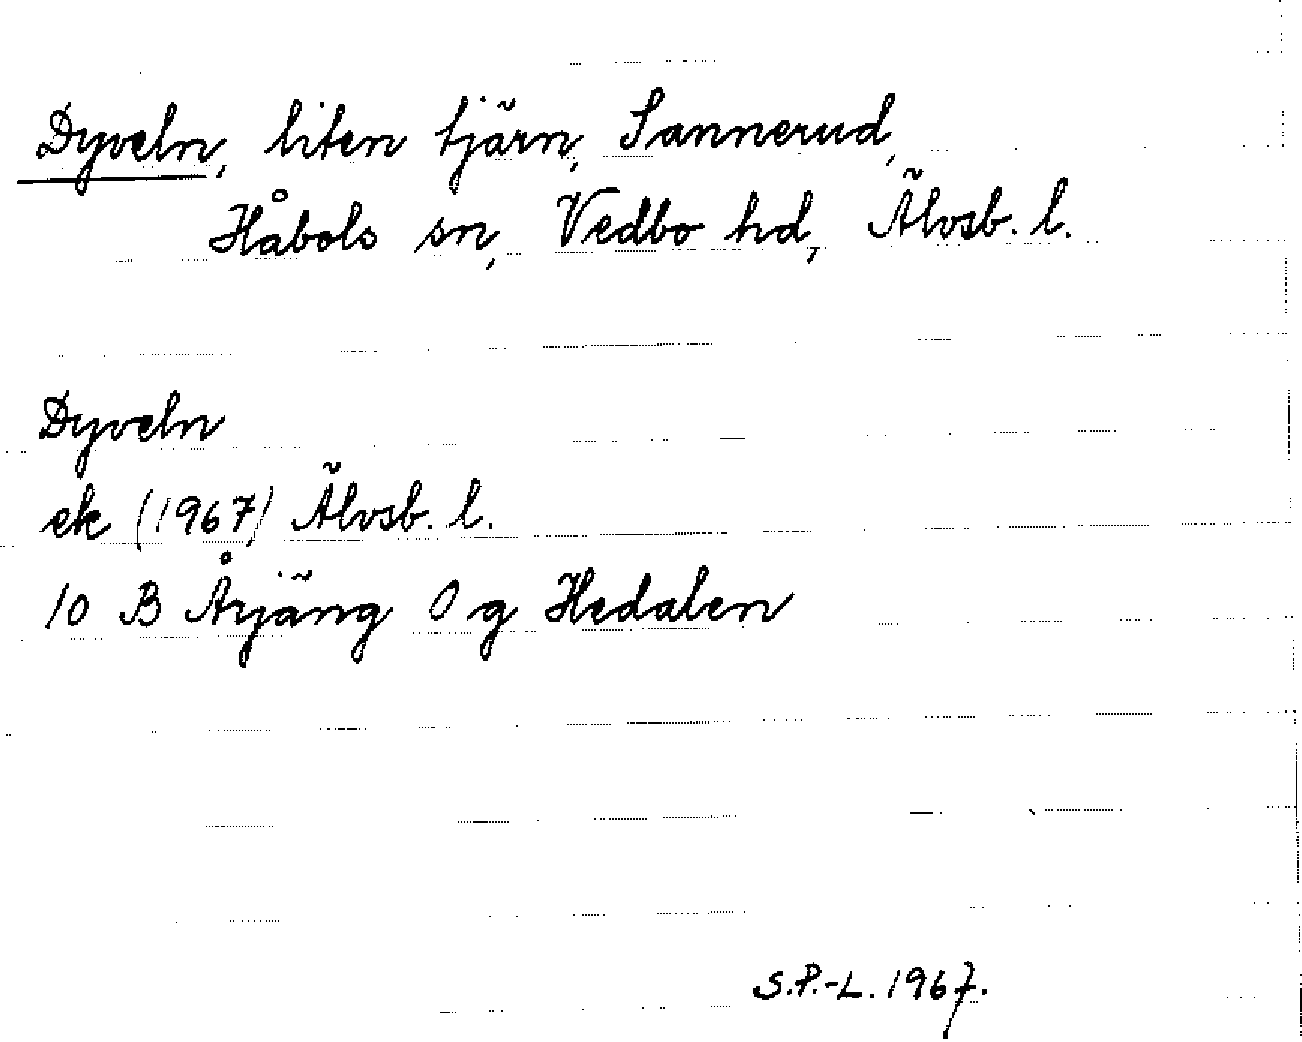 Dyveln, liten tjärn, Sannerud,
Håbols sn, Vedbo hd, Älvsb. l.
Dyveln
ek (1967) Älvsb. l.
10 B Årjäng 0 g Hedalen
S.P.-L. 1967.